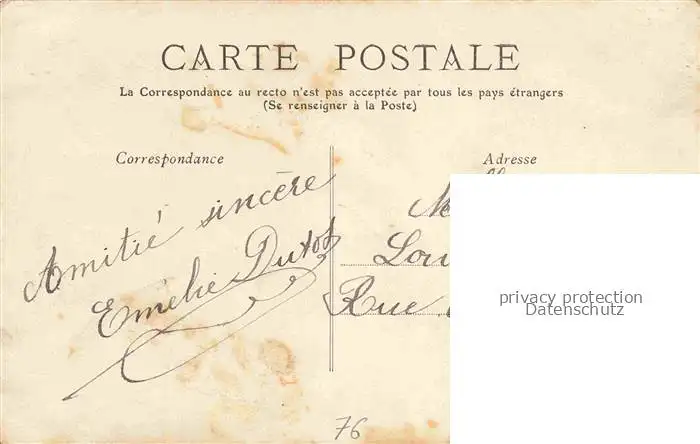 CARTE POSTALE
La Correspondance au recto n'est pas acceptée par tous les pays étrangers
(Se renseigner à la Poste)
Correspondance
Adresse
Amitié sincère
Emélie Dutot
Lou
Rue
privacy protection
Datenschutz
76